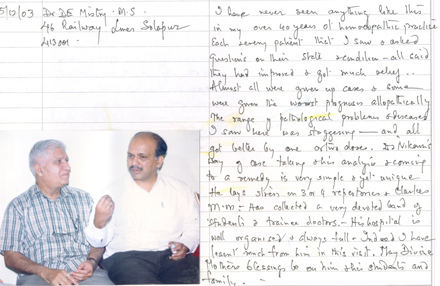 5/10/03 Dr D.E Mistry. M.S.
46 Railway Lines Solapur
413001.
I have never seen anything like this
in my over 40 years of homoeopathic practice
Each & every patient that I saw & asked
questions on their state & condition - all said
they had improved & got much relief..
Almost all were given up cases & some
were given the worst prognosis allopathically
The range of pathological problems & diseases
I saw here was staggering - and all
got better by one or two doses. Dr Nikam's
way of case taking & his analysis & coming
to a remedy is very simple & yet unique
He lays stress on 3 or 4 repertories & Clarkes
M.M. - Has collected a very devoted band of
students & trainee doctors. - His hospital is
well organised & always full - Indeed I have
learnt much from him in this visit. May Divine
Mothers blessings be on him & his students and
family. -